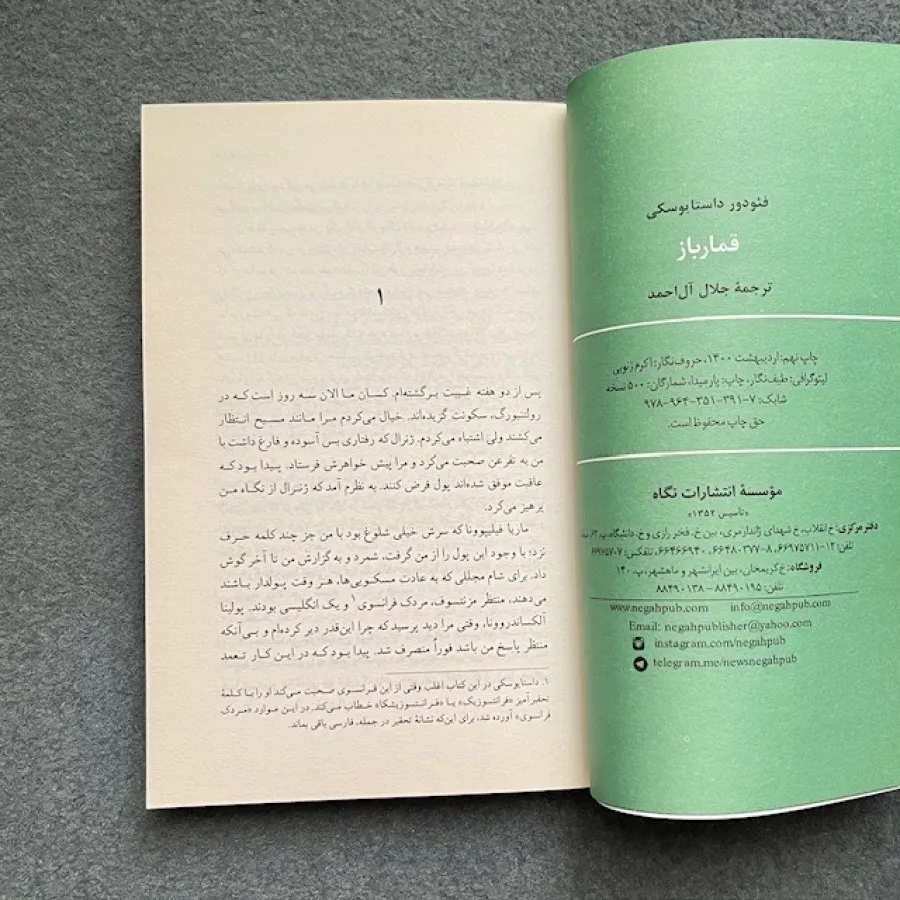 فئودور داستایوسکی
قمارباز
ترجمهٔ جلال آل‌احمد
چاپ نهم: اردیبهشت ۱۴۰۰، حروف‌نگار: اکرم زنوبی
لیتوگرافی: طیف‌نگار، چاپ: پارمیدا، شمارگان: ۵۰۰ نسخه
شابک: ۷-۳۹۱-۳۵۱-۹۶۴-۹۷۸
حق چاپ محفوظ است.
مؤسسهٔ انتشارات نگاه
«تاسیس ۱۳۵۲»
دفتر مرکزی: خ انقلاب، خ شهدای ژاندارمری، بین خ. فخر رازی و خ. دانشگاه، پ. ۶۳،
تلفن: ۱۲-۶۶۹۷۵۷۱۱، ۸-۶۶۴۸۰۳۷۷، ۶۶۴۶۶۹۴۰، تلفکس: ۶۶۹۷۵۷۰۷
فروشگاه: خ کریمخان، بین ایرانشهر و ماهشهر، پ. ۱۴۰
تلفن: ۸۸۴۹۰۱۹۵ - ۸۸۴۹۰۱۳۸
www.negahpub.com info@negahpub.com
Email: negahpublisher@yahoo.com
instagram.com/negahpub
telegram.me/newsnegahpub
۱
پس از دو هفته غیبت برگشته‌ام. کسان ما الان سه روز است که در
رولتنبورگ، سکونت گزیده‌اند. خیال می‌کردم مرا مانند مسیح انتظار
می‌کشند ولی اشتباه می‌کردم. ژنرال که رفتاری بس آسوده و فارغ داشت با
من به تفرعن صحبت می‌کرد و مرا پیش خواهرش فرستاد. پیدا بود که
عاقبت موفق شده‌اند پول قرض کنند. به نظرم آمد که ژنرال از نگاه من
پرهیز می‌کرد.
ماریا فیلیپوونا که سرش خیلی شلوغ بود با من جز چند کلمه حرف
نزد؛ با وجود این پول را از من گرفت، شمرد و به گزارش من تا آخر گوش
داد. برای شام مجللی که به عادت مسکویی‌ها، هر وقت پولدار باشند
می‌دهند، منتظر مزنتسوف، مردک فرانسوی۱ و یک انگلیسی بودند. پولینا
آلکساندروونا، وقتی مرا دید پرسید که چرا این‌قدر دیر کرده‌ام و بی‌آنکه
منتظر پاسخ من باشد فوراً منصرف شد. پیدا بود که در این کار تعمد
۱. داستایوسکی در این کتاب اغلب وقتی از این فرانسوی صحبت می‌کند او را با کلمهٔ
تحقیرآمیز «فرانتسوزیک» یا «فرانتسوزیشکا» خطاب می‌کند. در این موارد «مردک
فرانسوی» آورده شد، برای این‌که نشانهٔ تحقیر در جمله، فارسی باقی بماند.